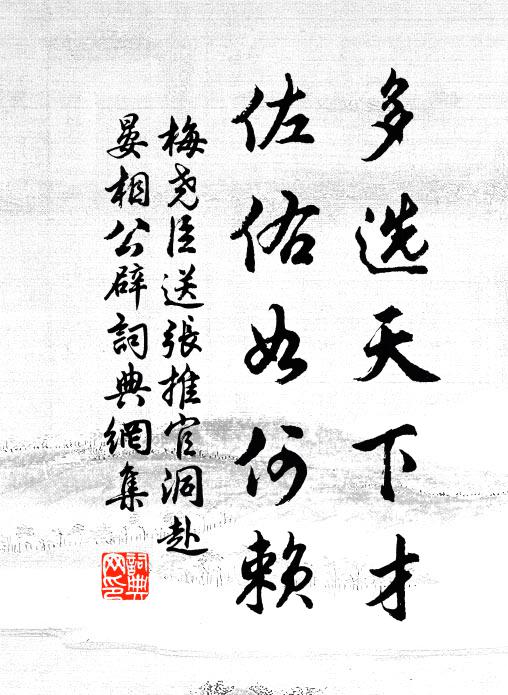 多选天下才
佐佑如何赖
梅尧臣送張推官洞赴
晏相公辟詞典網集
詞典網印